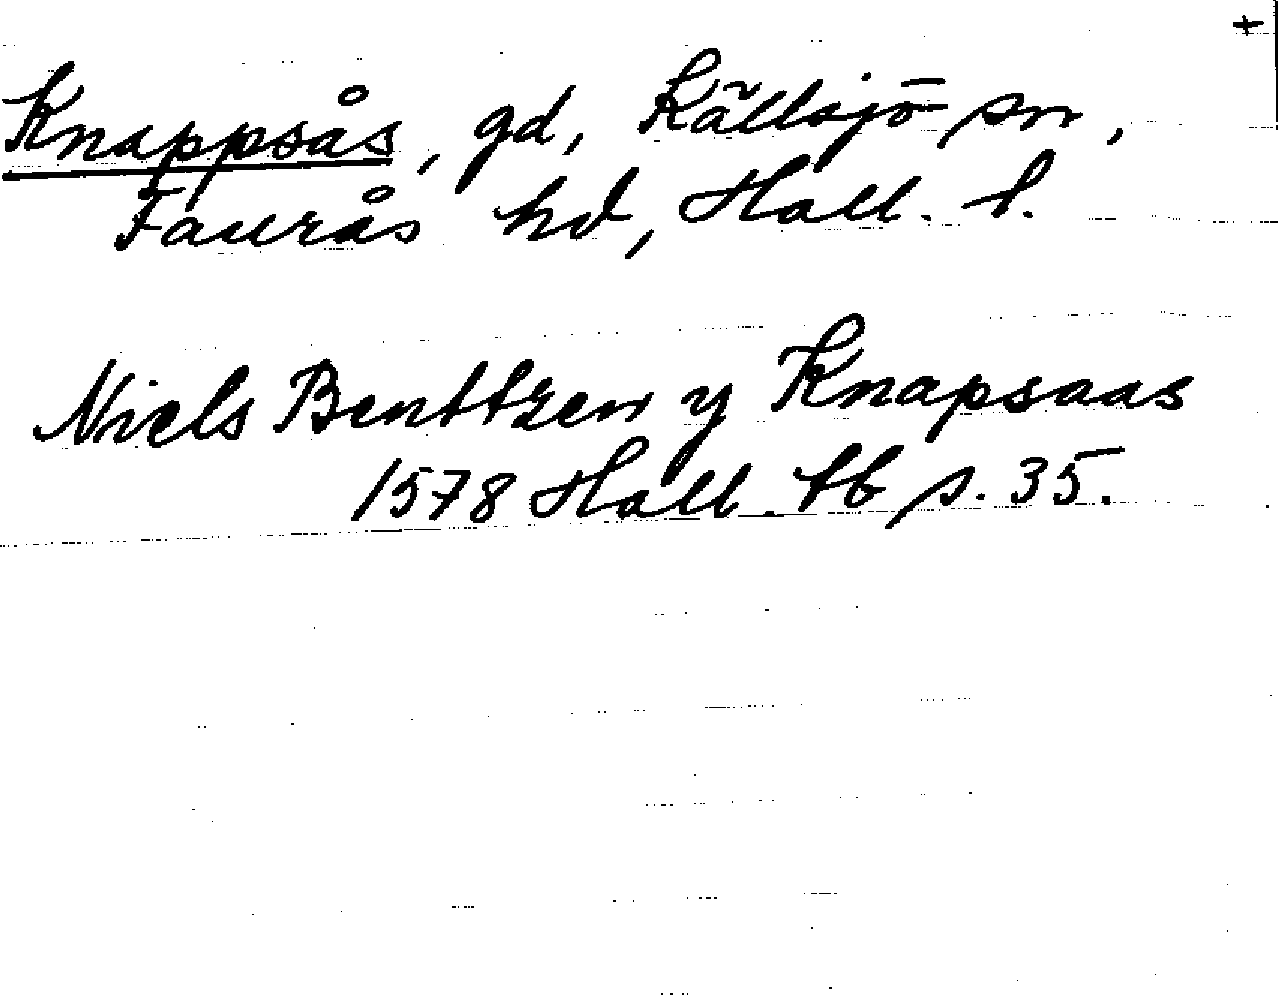 +
Knappsås, gd, Källsjö sn,
Faurås hd, Hall. l.
Niels Benttzen y Knapsaas
1578 Hall. tb s. 35.